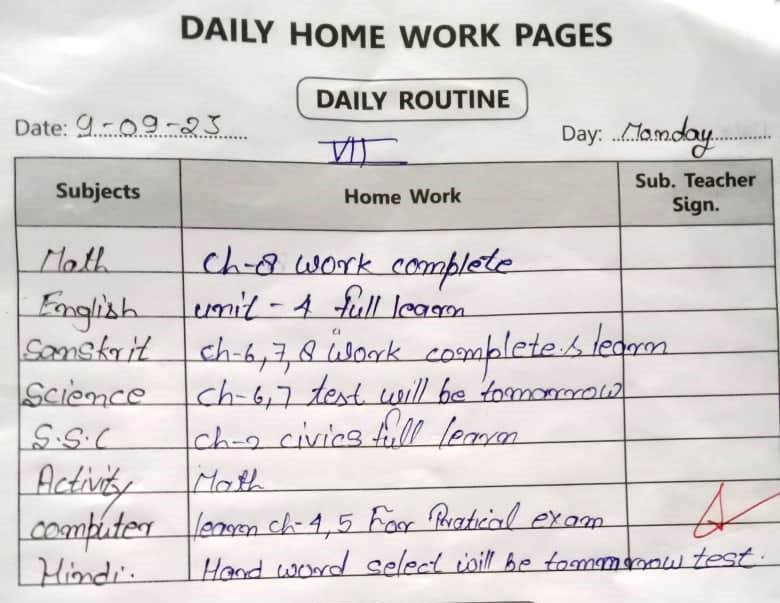 DAILY HOME WORK PAGES
DAILY ROUTINE
Date: 9-09-23 Day: Monday
VII
Subjects Home Work Sub. Teacher Sign.
Math ch-8 work complete
English unit - 4 full learn
Sanskrit ch-6,7,8 work complete & learn
Science ch-6,7 test will be tomorrow
S.S.C ch-2 civics full learn
Activity Math
computer learn ch-4,5 For Pratical exam
Hindi. Hard word select will be tommorrow test.